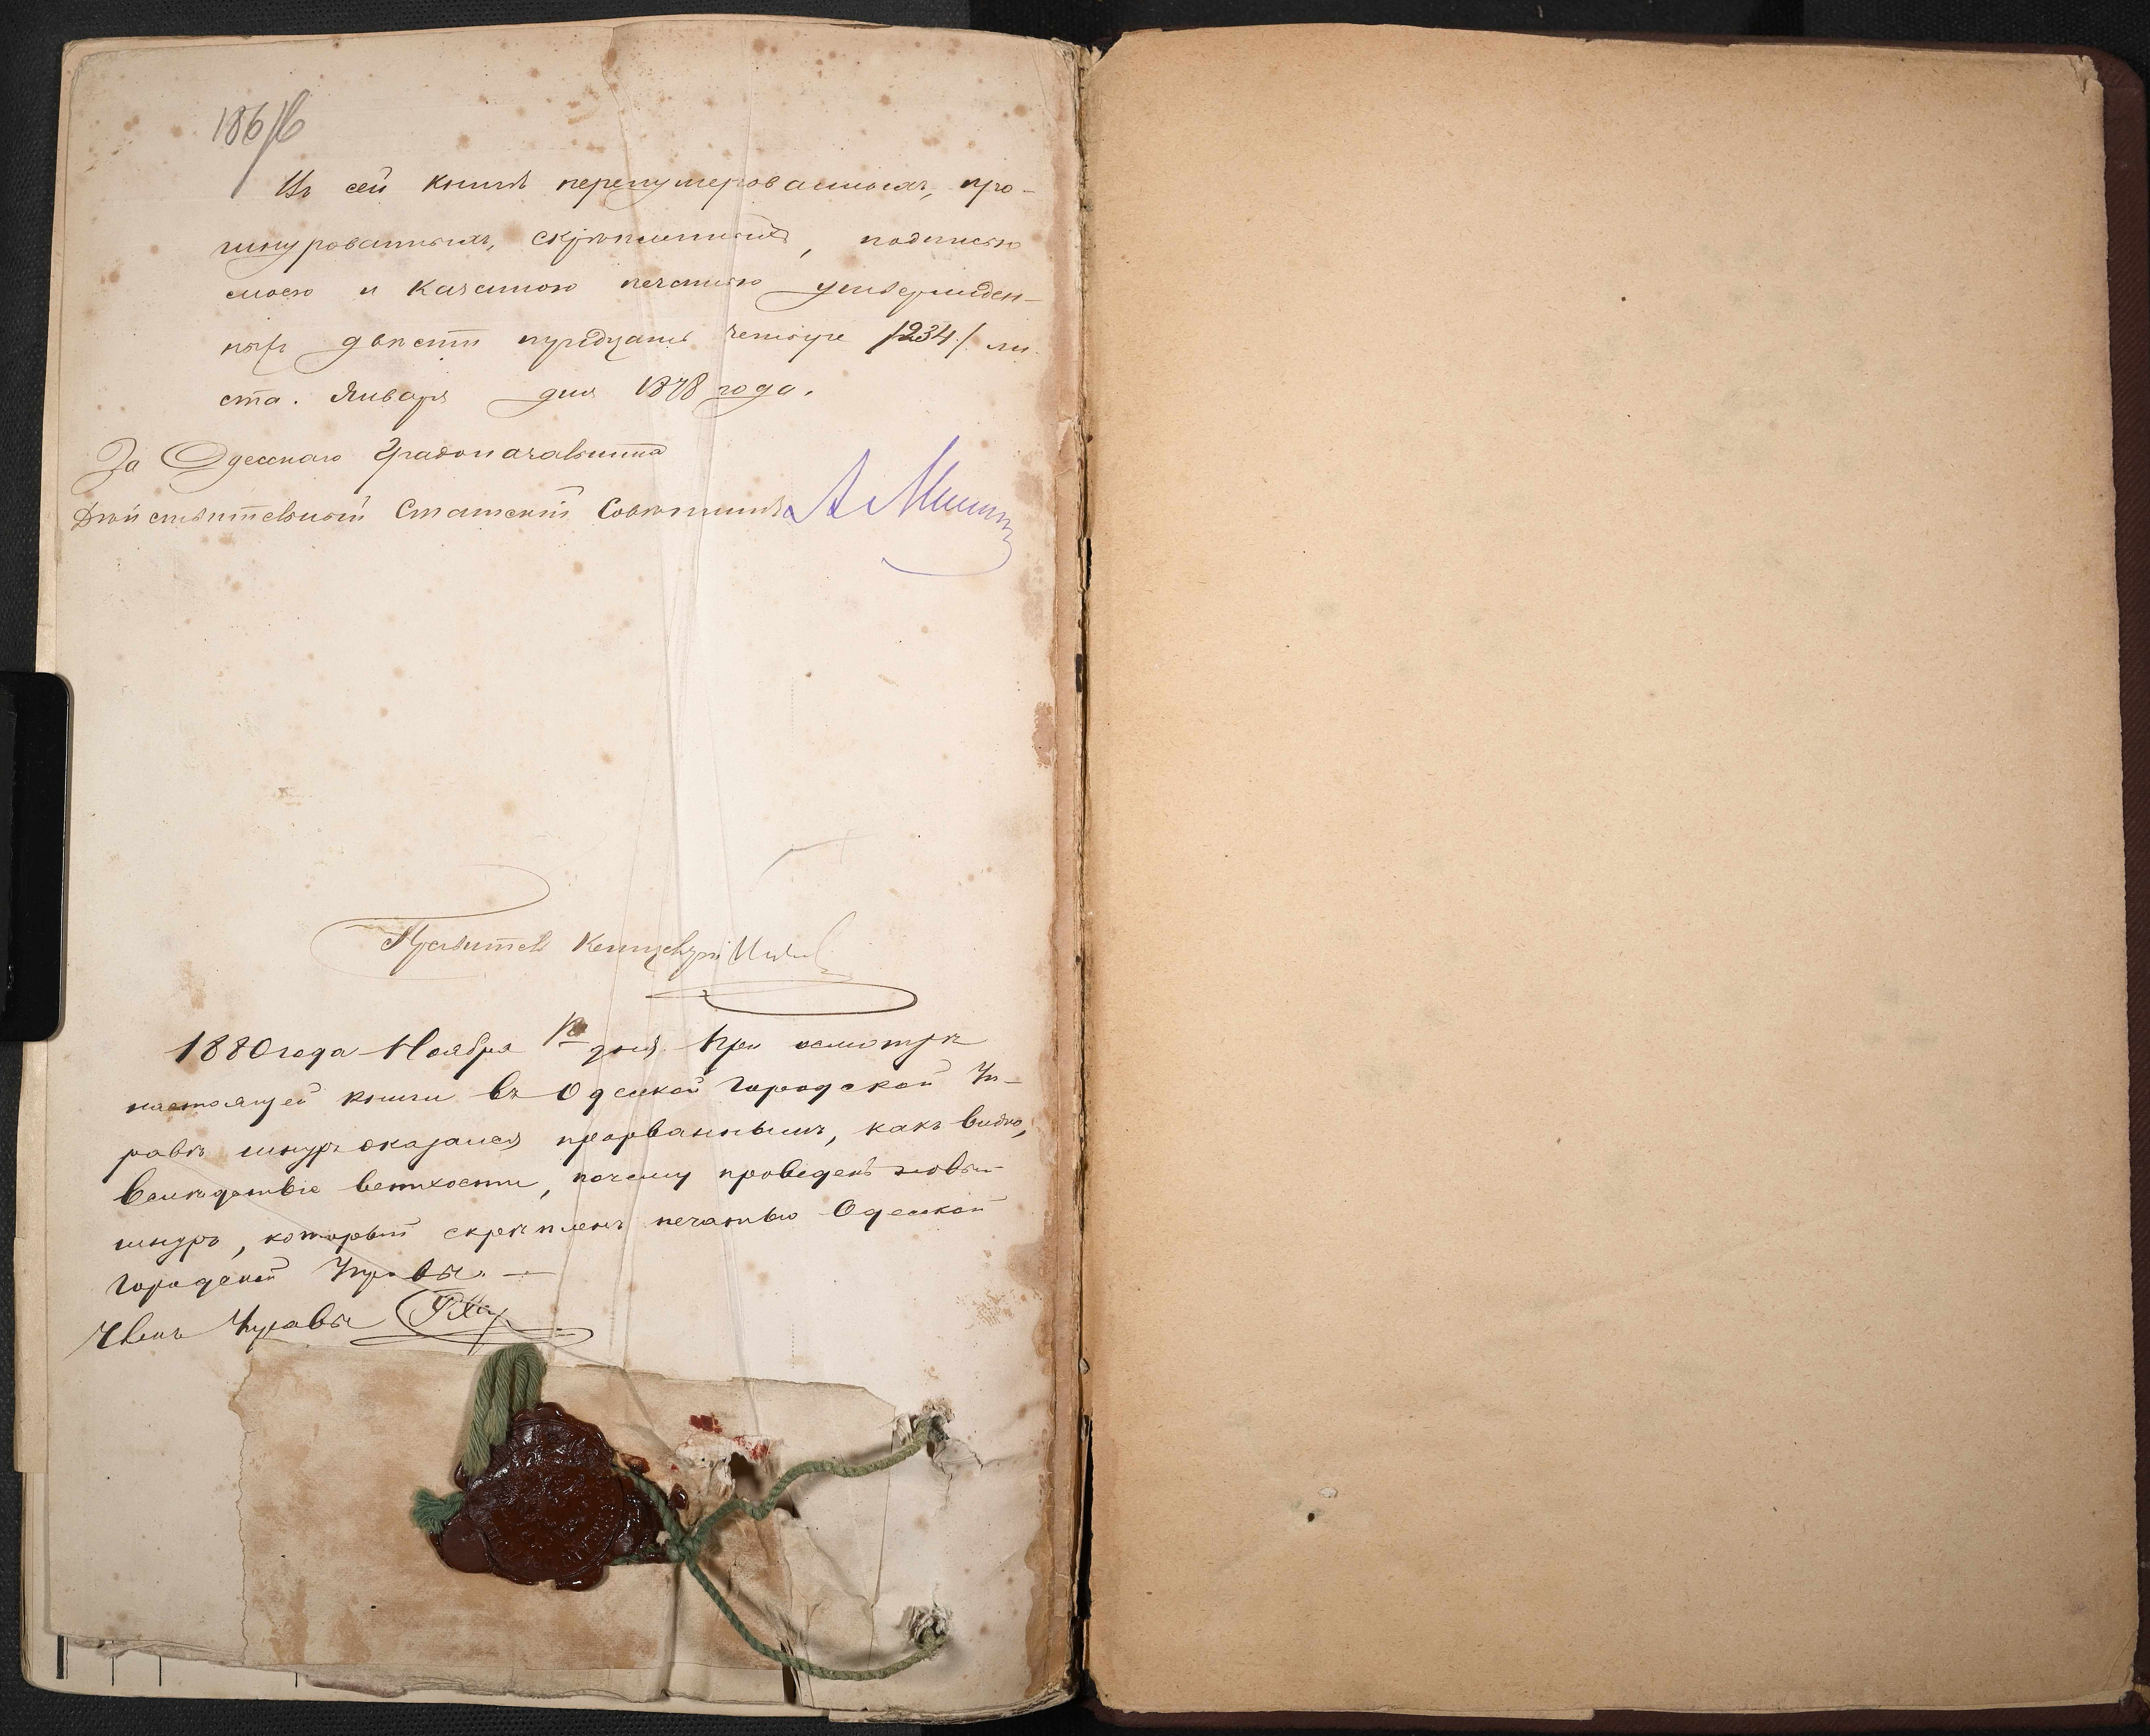 Въ сей книгѣ перенумерованныхъ, про-
шнурованныхъ, скрѣпленныхъ, подписью
моею и казенною печатью утвержден-
ныхъ двѣсти тридцать четыре /234/ ли
ста. Января дня 1878 года.
За Одесскаго Градоначальника
Дѣйствительный Статскій Совѣтникъ
Правитель Канцеляріи
1880 года Ноября дня. При осмотрѣ
настоящей книги въ Одесской Городской Уп-
равѣ шнуръ оказался прорваннымъ, какъ видно,
вслѣдствіе ветхости, почему проведенъ новый
шнуръ, который скрѣпленъ печатью Одесской
Городской Управы. —
Членъ Управы